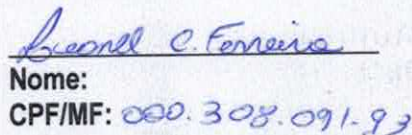 C. Ferreira
Nome:
CPF/MF: 000.308.091-93